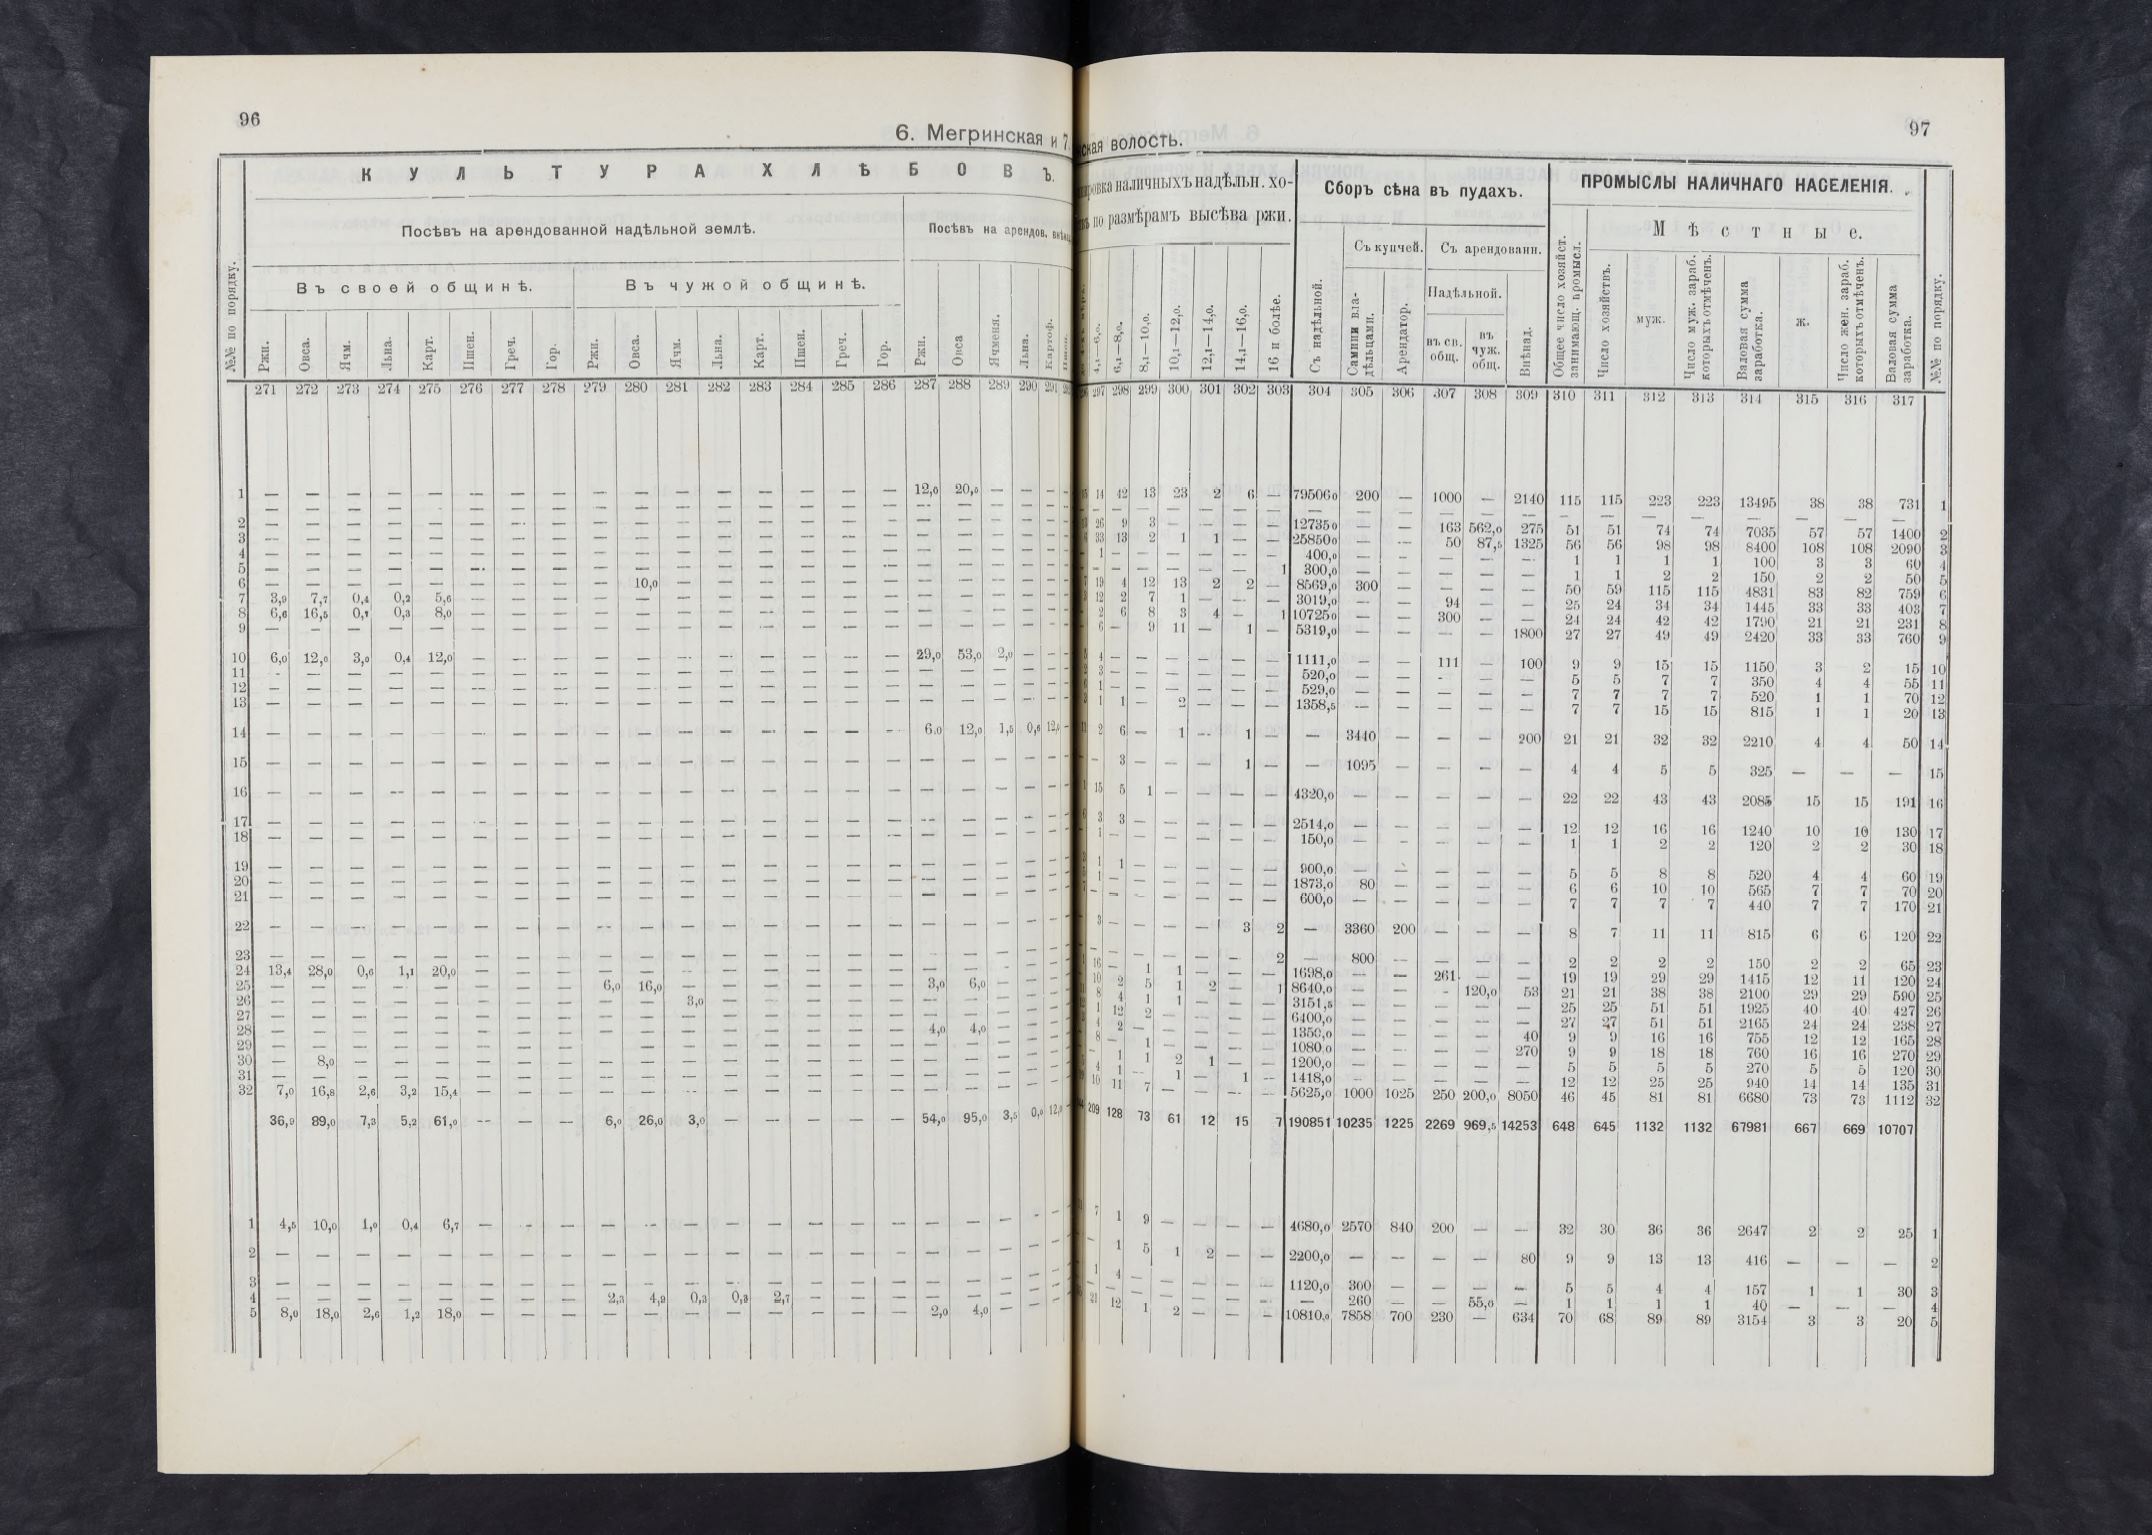 96
6. Мегринская и 7.
К У Л Ь Т У Р А Х Л Ѣ Б О В Ъ.
Посѣвъ на арендованной надѣльной землѣ.
Посѣвъ на арендов. внѣнад.
Въ своей общинѣ.
Въ чужой общинѣ.
№№ по порядку. Ржи. Овса. Ячм. Льна. Карт. Пшен. Греч. Гор. Ржи. Овса. Ячм. Льна. Карт. Пшен. Греч. Гор. Ржи. Овса Ячменя. Льна. Картоф.
271 272 273 274 275 276 277 278 279 280 281 282 283 284 285 286 287 288 289 290 291
1 — — — — — — — — — — — — — — — — 12,0 20,0 — — —
2 — — — — — — — — — — — — — — — — — — — — —
3 — — — — — — — — — — — — — — — — — — — — —
4 — — — — — — — — — — — — — — — — — — — — —
5 — — — — — — — — — — — — — — — — — — — — —
6 — — — — — — — — — 10,0 — — — — — — — — — — —
7 3,9 7,7 0,4 0,2 5,6 — — — — — — — — — — — — — — — —
8 6,6 16,5 0,7 0,3 8,0 — — — — — — — — — — — — — — — —
9 — — — — — — — — — — — — — — — — — — — — —
10 6,0 12,0 3,0 0,4 12,0 — — — — — — — — — — — 29,0 53,0 2,0 — —
11 — — — — — — — — — — — — — — — — — — — — —
12 — — — — — — — — — — — — — — — — — — — — —
13 — — — — — — — — — — — — — — — — — — — — —
14 — — — — — — — — — — — — — — — — 6,0 12,0 1,5 0,6 12,0
15 — — — — — — — — — — — — — — — — — — — — —
16 — — — — — — — — — — — — — — — — — — — — —
17 — — — — — — — — — — — — — — — — — — — — —
18 — — — — — — — — — — — — — — — — — — — — —
19 — — — — — — — — — — — — — — — — — — — — —
20 — — — — — — — — — — — — — — — — — — — — —
21 — — — — — — — — — — — — — — — — — — — — —
22 — — — — — — — — — — — — — — — — — — — — —
23 — — — — — — — — — — — — — — — — — — — — —
24 13,4 28,0 0,6 1,1 20,0 — — — — — — — — — — — — — — — —
25 — — — — — — — — 6,0 16,0 — — — — — — 3,0 6,0 — — —
26 — — — — — — — — — — 3,0 — — — — — — — — — —
27 — — — — — — — — — — — — — — — — — — — — —
28 — — — — — — — — — — — — — — — — 4,0 4,0 — — —
29 — — — — — — — — — — — — — — — — — — — — —
30 — 8,0 — — — — — — — — — — — — — — — — — — —
31 — — — — — — — — — — — — — — — — — — — — —
32 7,0 16,8 2,6 3,2 15,4 — — — — — — — — — — — — — — — —
36,9 89,0 7,3 5,2 61,0 — — — 6,0 26,0 3,0 — — — — — 54,0 95,0 3,5 0,6 12,0
1 4,5 10,0 1,0 0,4 6,7 — — — — — — — — — — — — — — — —
2 — — — — — — — — — — — — — — — — — — — — —
3 — — — — — — — — — — — — — — — — — — — — —
4 — — — — — — — — 2,3 4,9 0,3 0,3 2,7 — — — — — — — —
5 8,0 18,0 2,6 1,2 18,0 — — — — — — — — — — — 2,0 4,0 — — —
97
ская волость.
наличныхъ надѣльн. хо-
по размѣрамъ высѣва ржи.
Сборъ сѣна въ пудахъ.
ПРОМЫСЛЫ НАЛИЧНАГО НАСЕЛЕНІЯ.
Съ купчей. Съ арендованн.
М ѣ с т н ы е.
Надѣльной.
4,1—6,0. 6,1—8,0. 8,1—10,0. 10,1—12,0. 12,1—14,0. 14,1—16,0. 16 и болѣе. Съ надѣльной. Самими вла-дѣльцами. Арендатор. въ св. общ. въ чуж. общ. Внѣнад. Общее число хозяйст. занимающ. промысл. Число хозяйствъ. муж. Число муж. зараб. которыхъ отмѣчен. Валовая сумма заработка. ж. Число жен. зараб. которыхъ отмѣченъ. Валовая сумма заработка. №№ по порядку.
297 298 299 300 301 302 303 304 305 306 307 308 309 310 311 312 313 314 315 316 317
14 42 13 23 2 6 — 79506,0 200 — 1000 — 2140 115 115 223 223 13495 38 38 731 1
26 9 3 — — — — 12735,0 — — 163 562,0 275 51 51 74 74 7035 57 57 1400 2
33 13 2 1 1 — — 25850,0 — — 50 87,5 1325 56 56 98 98 8400 108 108 2090 3
1 — — — — — — 400,0 — — — — — 1 1 1 1 100 3 3 60 4
— — — — — — 1 300,0 — — — — — 1 1 2 2 150 2 2 50 5
19 4 12 13 2 2 — 8569,0 300 — — — — 50 59 115 115 4831 83 82 759 6
12 2 7 1 — — — 3019,0 — — 94 — — 25 24 34 34 1445 33 33 403 7
2 6 8 3 4 — 1 10725,0 — — 300 — — 24 24 42 42 1790 21 21 231 8
6 — 9 11 — 1 — 5319,0 — — — — 1800 27 27 49 49 2420 33 33 760 9
4 — — — — — — 1111,0 — — 111 — 100 9 9 15 15 1150 3 2 15 10
3 — — — — — — 520,0 — — — — — 5 5 7 7 350 4 4 55 11
1 — — — — — — 529,0 — — — — — 7 7 7 7 520 1 1 70 12
1 1 — 2 — — — 1358,5 — — — — — 7 7 15 15 815 1 1 20 13
2 6 — 1 — 1 — — 3440 — — — 200 21 21 32 32 2210 4 4 50 14
— 3 — — — 1 — — 1095 — — — — 4 4 5 5 325 — — — 15
15 5 1 — — — — 4320,0 — — — — — 22 22 43 43 2085 15 15 191 16
3 3 — — — — — 2514,0 — — — — — 12 12 16 16 1240 10 10 130 17
1 — — — — — — 150,0 — — — — — 1 1 2 2 120 2 2 30 18
1 1 — — — — — 900,0 — — — — — 5 5 8 8 520 4 4 60 19
1 — — — — — — 1873,0 80 — — — — 6 6 10 10 565 7 7 70 20
— — — — — — — 600,0 — — — — — 7 7 7 7 440 7 7 170 21
3 — — — — 3 2 — 3360 200 — — — 8 7 11 11 815 6 6 120 22
— — — — — — 2 — 800 — — — — 2 2 2 2 150 2 2 65 23
16 — 1 1 — — — 1698,0 — — 261 — — 19 19 29 29 1415 12 11 120 24
10 2 5 1 2 — 1 8640,0 — — — 120,0 53 21 21 38 38 2100 29 29 590 25
8 4 1 1 — — — 3151,5 — — — — — 25 25 51 51 1925 40 40 427 26
1 12 2 — — — — 6400,0 — — — — — 27 27 51 51 2165 24 24 238 27
4 2 — — — — — 1350,0 — — — — 40 9 9 16 16 755 12 12 165 28
8 — 1 — — — — 1080,0 — — — — 270 9 9 18 18 760 16 16 270 29
— 1 1 2 1 — — 1200,0 — — — — — 5 5 5 5 270 5 5 120 30
4 1 — 1 — 1 — 1418,0 — — — — — 12 12 25 25 940 14 14 135 31
10 11 7 — — — — 5625,0 1000 1025 250 200,0 8050 46 45 81 81 6680 73 73 1112 32
209 128 73 61 12 15 7 190851 10235 1225 2269 969,5 14253 648 645 1132 1132 67981 667 669 10707
7 1 9 — — — — 4680,0 2570 840 200 — — 32 30 36 36 2647 2 2 25 1
— 1 5 1 2 — — 2200,0 — — — — 80 9 9 13 13 416 — — — 2
1 4 — — — — — 1120,0 300 — — — — 5 5 4 4 157 1 1 30 3
— — — — — — — — 260 — — 55,0 — 1 1 1 1 40 — — — 4
21 12 1 2 — — — 10810,0 7858 700 230 — 634 70 68 89 89 3154 3 3 20 5